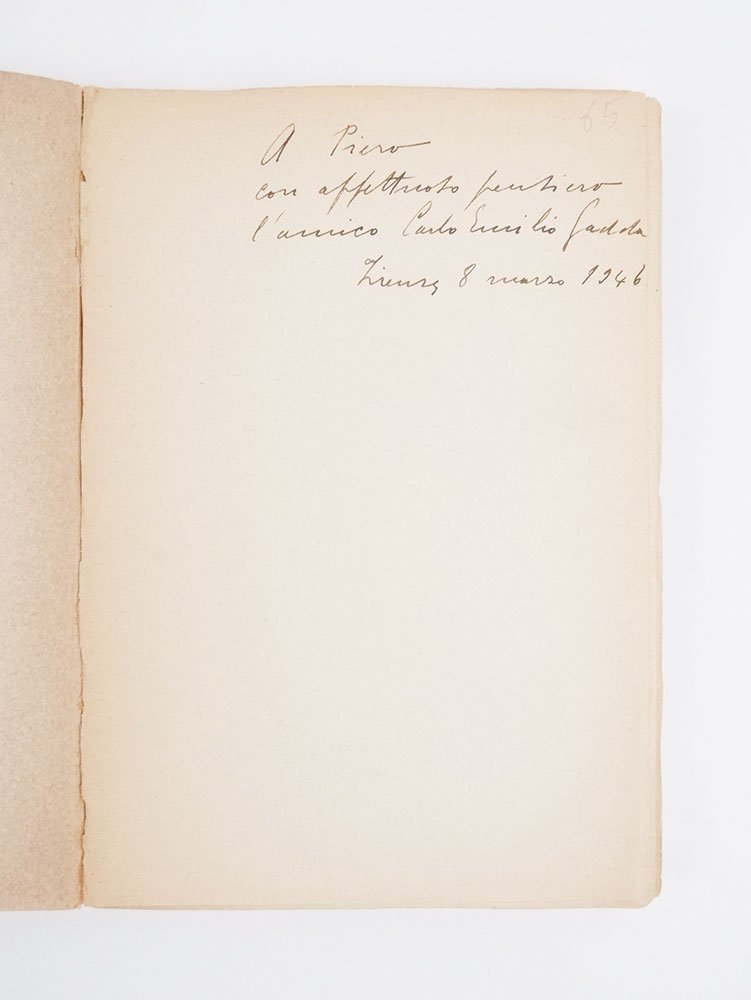 65
A Piero
con affettuoso pensiero
l'amico Carlo Emilio Gadda
Firenze, 8 marzo 1946